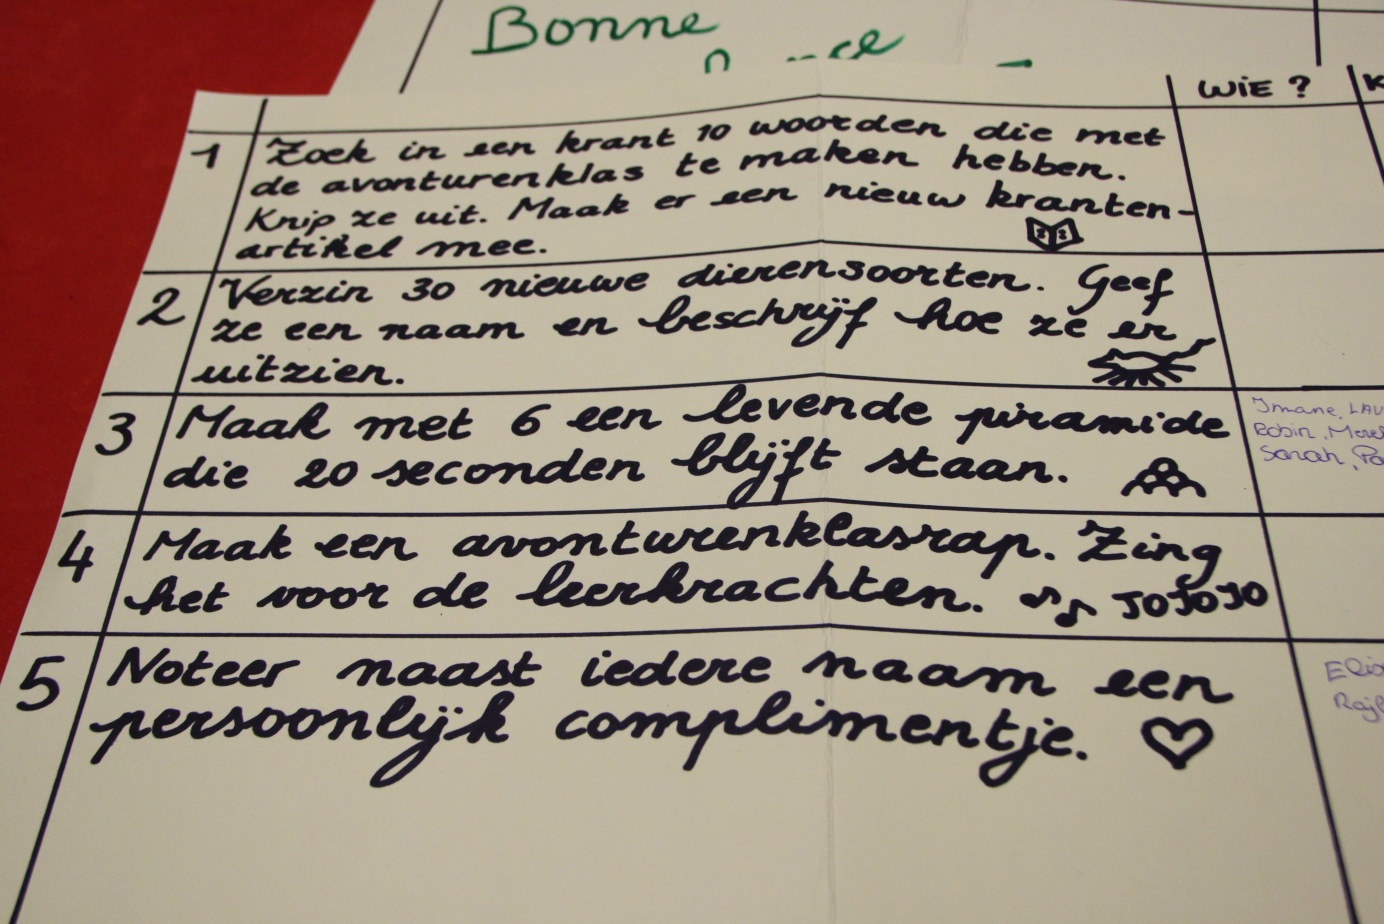 Bonne
WIE ?
1 Zoek in een krant 10 woorden die met
de avonturenklas te maken hebben.
Knip ze uit. Maak er een nieuw kranten-
artikel mee.
2 Verzin 30 nieuwe dierensoorten. Geef
ze een naam en beschrijf hoe ze er
uitzien.
3 Maak met 6 een levende piramide
die 20 seconden blijft staan.
Imane,
Robin,
Sarah,
4 Maak een avonturenklasrap. Zing
het voor de leerkrachten. JOJOJO
5 Noteer naast iedere naam een
persoonlijk complimentje.